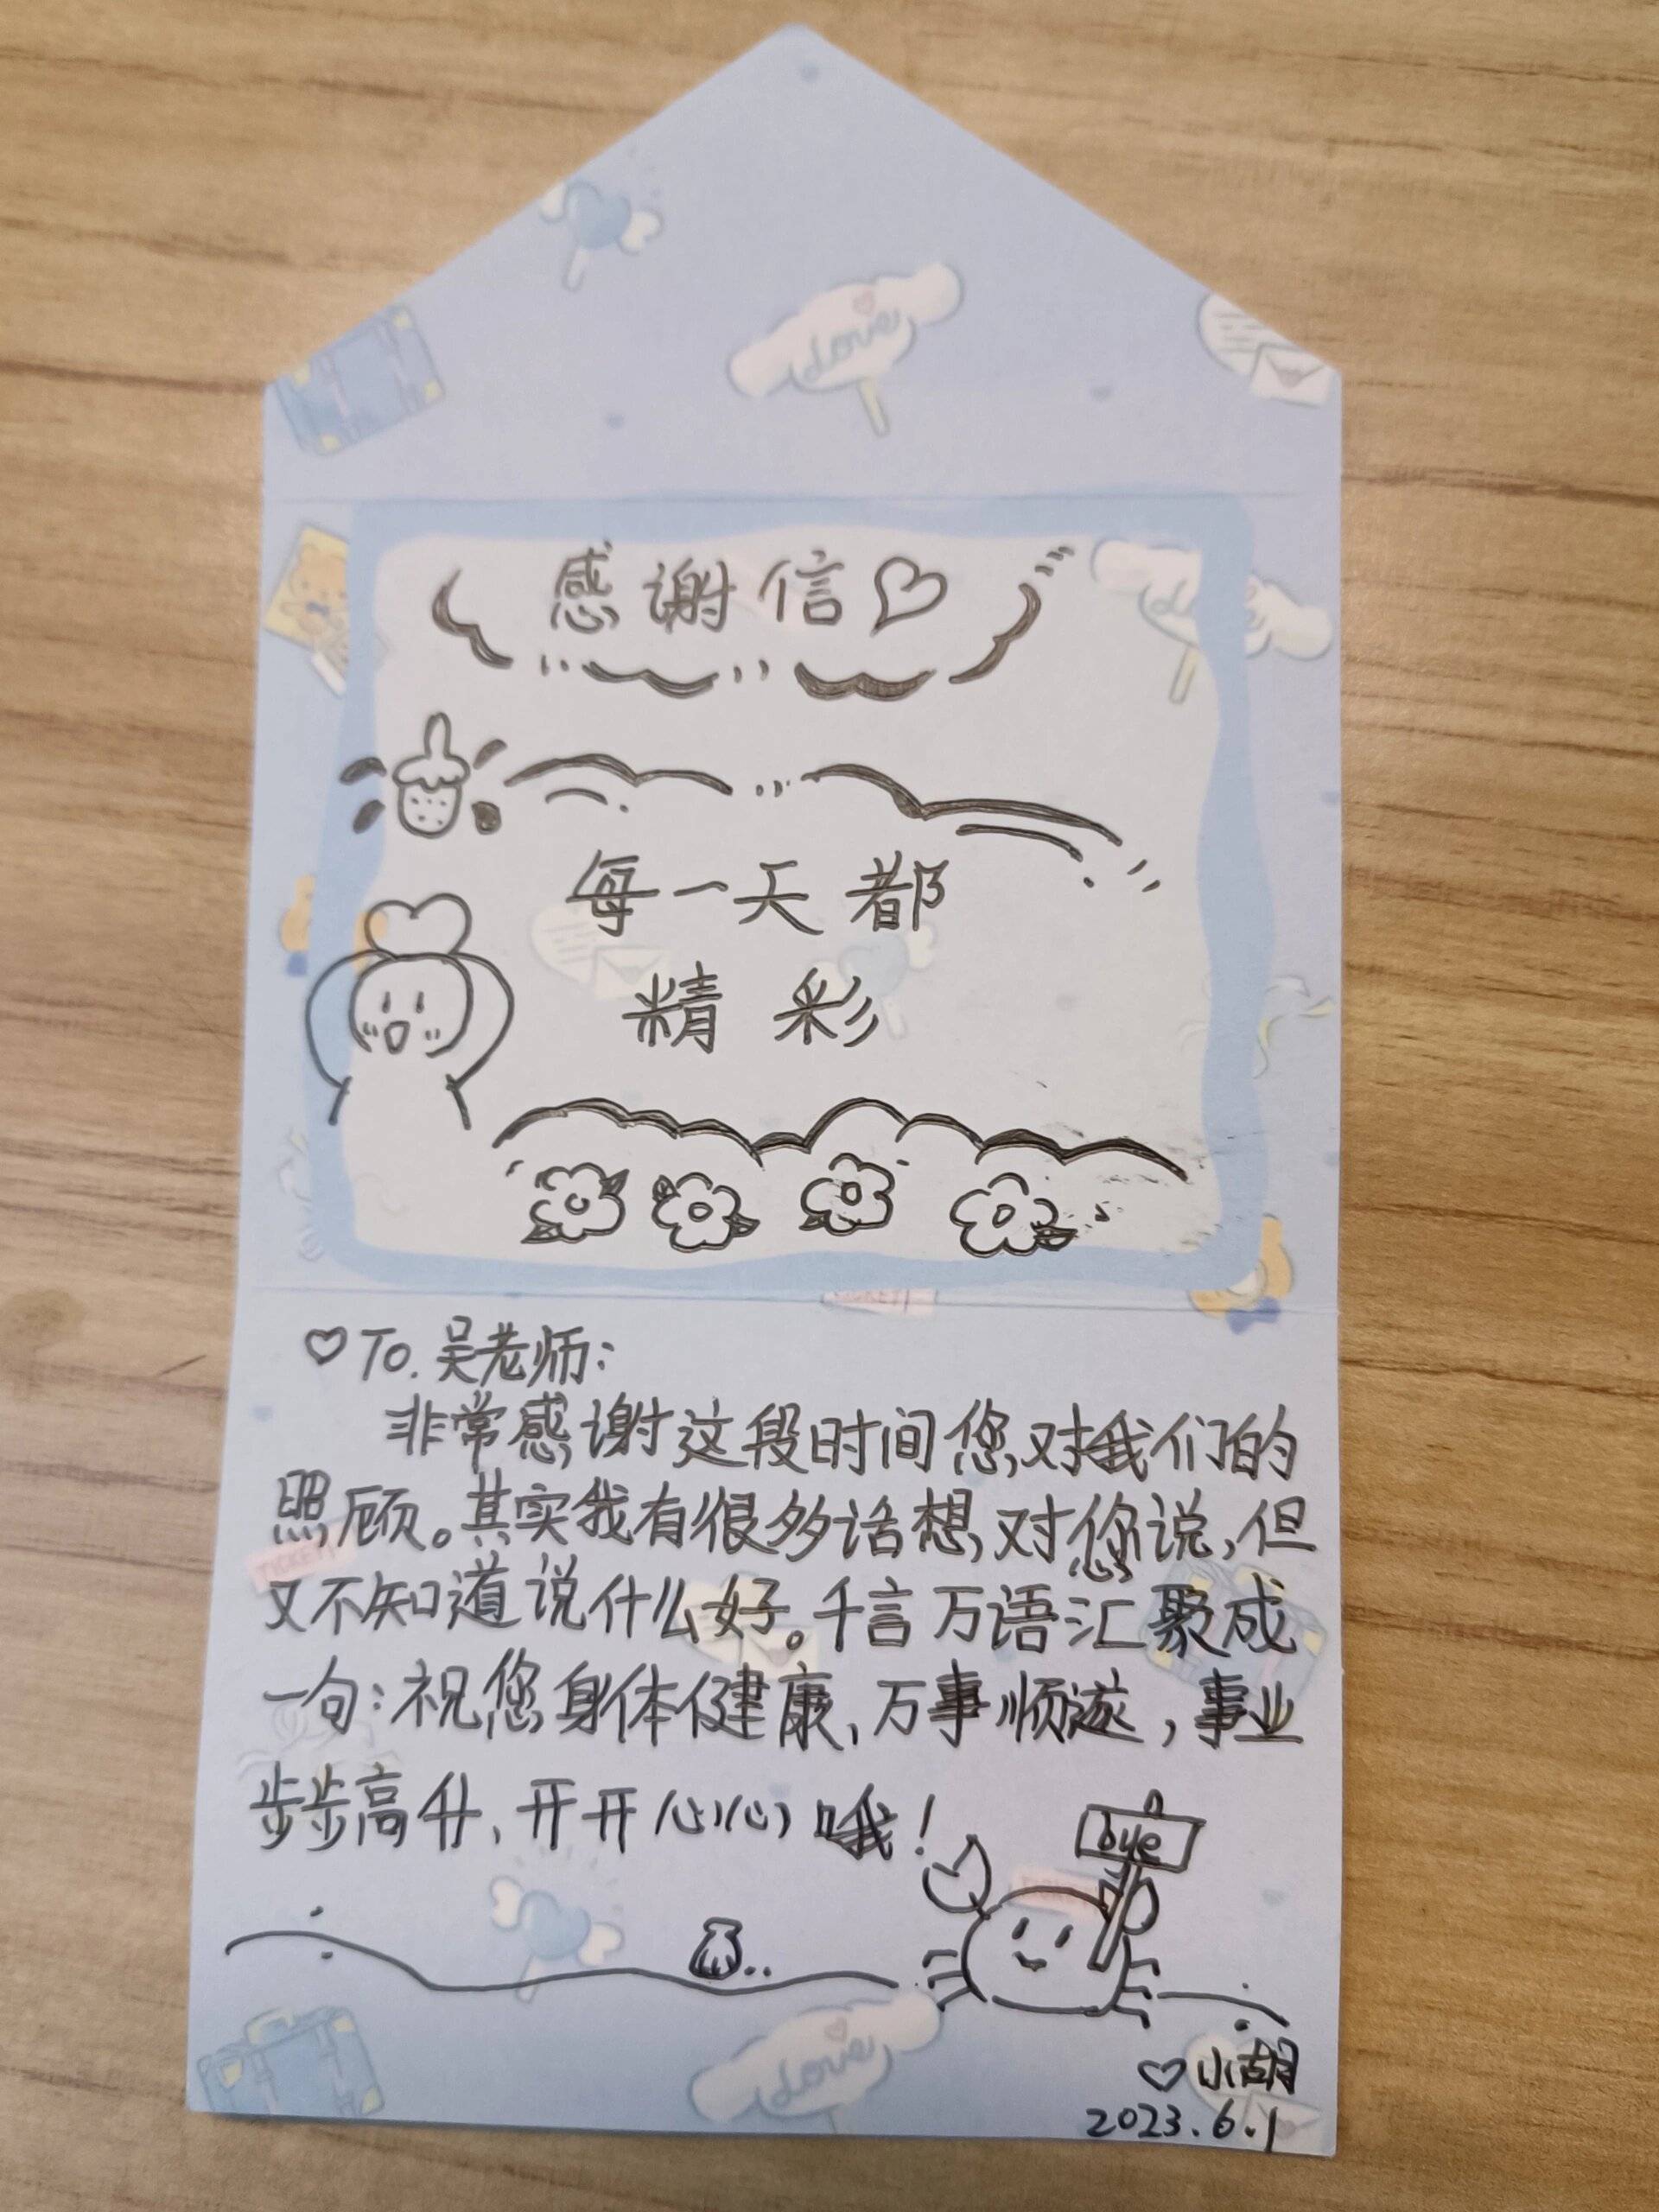 Love
感谢信♡
每一天都
精彩
♡To.吴老师:
非常感谢这段时间您对我们的
照顾。其实我有很多话想对您说,但
又不知道说什么好。千言万语汇聚成
一句:祝您身体健康、万事顺遂,事业
步步高升、开开心心哦!
bye
Love
♡小胡
2023.6.1